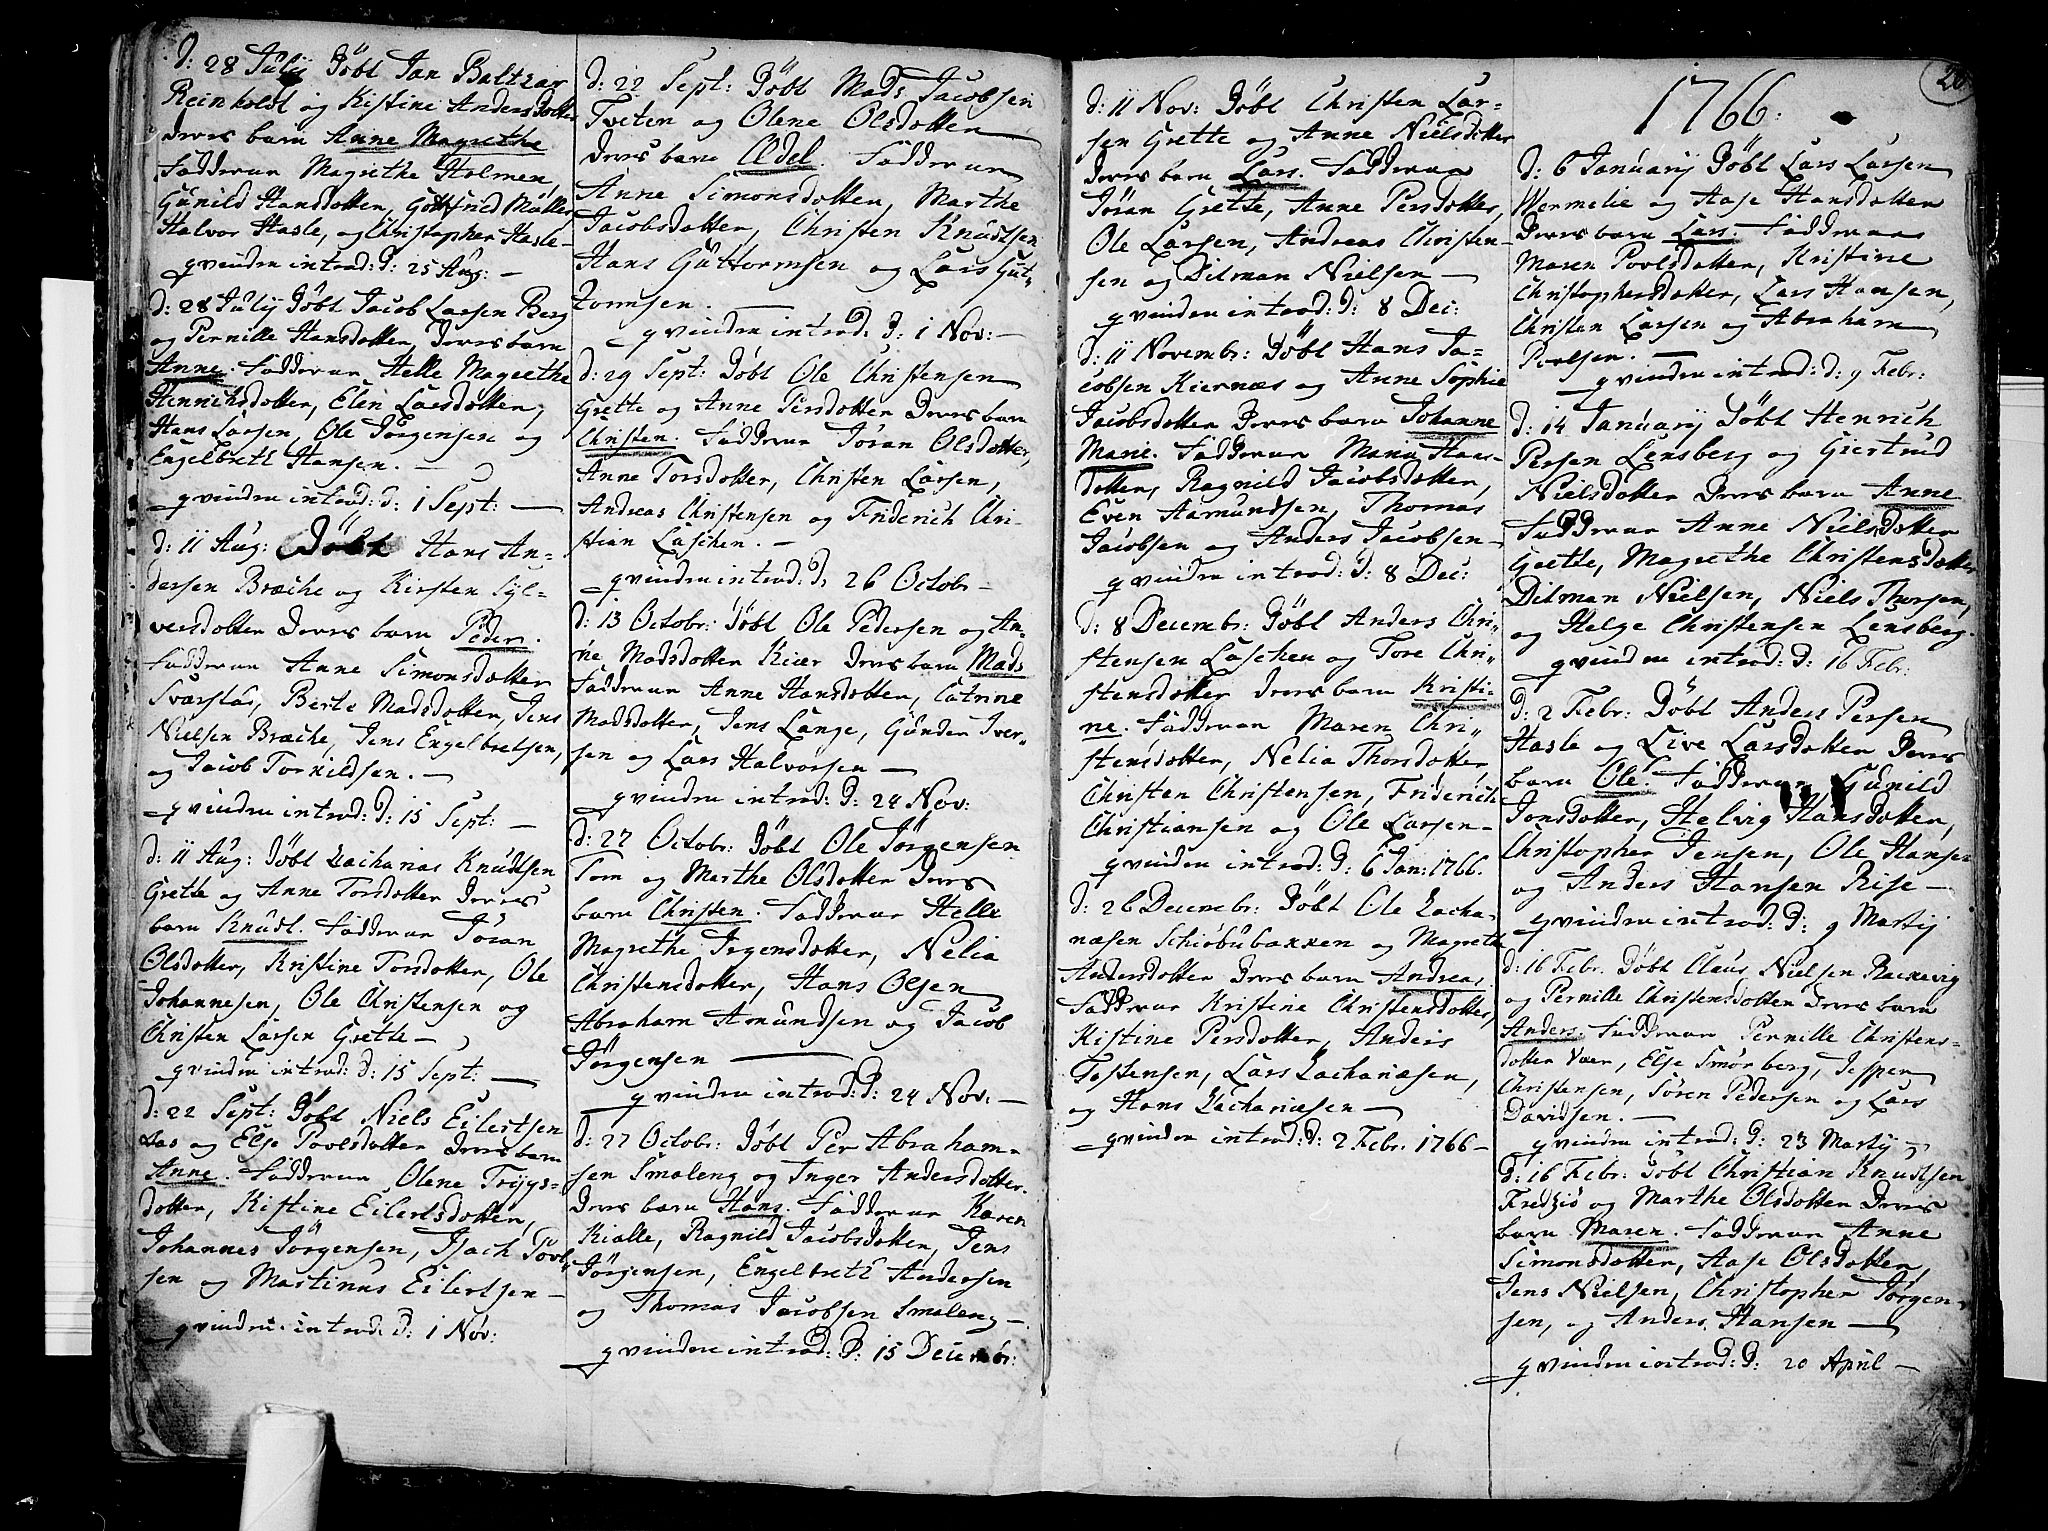 d: 28 Julij Döbt Jan Baltzar
Reinholdt og Kistine Andersdotter
deres barn Anne Magrethe
Fadderne Magrethe Holmen,
Gunild Hansdotter, Gottfried Müller
Halvor Hasle, og Christopher Hasle -
qvinden introd: d: 25 Aug: -
d: 28 Julij Döbt Jacob Larsen Berg
og Pernille Hansdotter, deres barn
Anne. Fadderne Helle Magrethe
Henrichsdotter, Elen Larsdotter,
Hans Larsen, Ole Jörgensen og
Engelbreth Hansen. -
qvinden introd: d: 1 Sept: -
d: 11 Aug: Döbt Hans An-
dersen Bræche og Kirsten Syl-
versdotter deres barn Peder.
Fadderne Anne Simonsdotter
Sværstad, Berte Madsdotter, Jens
Nielsen Bræche, Jens Engelbretsen,
og Jacob Torkildsen. -
qvinden introd: d: 15 Sept: -
d: 11 Aug: Döbt Zacharias Knudtsen
Grette og Anne Torsdotter deres
barn Knudt. Fadderne Jöran
Olsdotter, Kristine Torsdotter, Ole
Johannesen, Ole Christensen og
Christen Larsen Grette -
qvinden introd: d: 15 Sept: -
d: 22 Sept: Döbt Niels Eilertsen
Aas og Else Povlsdotter deres barn
Anne. Fadderne Olene Trygs-
dotter, Kistine Eilertsdotter,
Johannes Jörgensen, Isach Povl-
sen og Martinus Eilertsen -
qvinden introd: d: 1 Nov:
d: 22 Sept: Döbt Mads Jacobsen
Tveten og Olene Olsdotter
deres barn Edel. Fadderne
Anne Simonsdotter, Marthe
Jacobsdotter, Christen Knudtsen
Hans Guttormsen og Lars Gut-
tormsen. -
qvinden introd: d: 1 Nov: -
d: 29 Sept: Döbt Ole Christensen
Grette og Anne Persdotter deres barn
Christen. Fadderne Jöran Olsdotter,
Anne Torsdotter, Christen Larsen,
Andreas Christensen og Friderich Chri-
stian Laschen. -
qvinden introd: d: 26 Octobr -
d: 13 Octobr: Döbt Ole Pedersen og An-
ne Madsdotter Kiær deres barn Mads
Fadderne Anne Hansdotter, Catrine
Madsdotter, Jens Lange, Gunder Iver-
sen og Lars Halvorsen -
qvinden introd: d: 24 Nov:
d: 27 Octobr: Döbt Ole Jörgensen
Torn og Marthe Olsdotter deres
barn Christen. Fadderne Helle
Magrethe Irgensdotter, Nelia
Christensdotter, Hans Olsen
Abraham Amundsen og Jacob
Jörgensen -
qvinden introd: d: 24 Nov: -
d: 27 Octobr: Döbt Per Abraham-
sen Smaleng og Inger Andersdotter.
deres barn Hans. Fadderne Karen
Kialle, Ragnild Jacobsdotter, Jens
Jörgensen, Engelbreth Andersen
og Thomas Jacobsen Smaleng -
qvinden introd: d: 15 Decembr:
d: 11 Nov: Döbt Christen Lar-
sen Grette og Anne Nielsdotter
deres barn Lars. Fadderne
Jöran Grette, Anne Persdotter,
Ole Larsen, Andreas Christen-
sen og Ditman Nielsen -
qvinden introd: d: 8 Dec:
d: 11 Novembr: Döbt Hans Ja-
cobsen Kiernæs og Anne Sophie
Jacobsdotter deres barn Johanne
Marie. Fadderne Maria Hans-
dotter, Ragnild Jacobsdotter,
Even Aamundsen, Thomas
Jacobsen og Anders Jacobsen -
qvinden introd: d: 8 Dec:
d: 8 Decembr: Döbt Anders Chri-
stensen Laschen og Tore Chri-
stensdotter deres barn Kristi-
ne. Fadderne Maren Chri-
stensdotter, Nelia Thorsdotter
Christen Christensen, Friderich
Christiansen og Ole Larsen -
qvinden introd: d: 6 Jan: 1766.
d: 26 Decembr: Döbt Ole Zacha-
riæsen Schiöbubakken og Magrete
Andersdotter deres barn Andreas
Fadderne Kristine Christensdotter,
Kistine Persdotter, Anders
Tostensen, Lars Zachariæsen,
og Hans Zachariæsen -
qvinden introd: d: 2 Febr. 1766 -
20
1766.
d: 6 Januarij Döbt Lars Larsen
Wermelie og Aase Hansdotter
deres barn Lars. Fadderne
Maren Povlsdotter, Kristine
Christophersdotter, Lars Hansen,
Christen Larsen og Abraham
Povlsen. -
qvinden introd: d: 9 Febr:
d: 14 Januarij Döbt Henrich
Persen Lensberg og Giertrud
Nielsdotter deres barn Anne
Fadderne Anne Nielsdotter
Grette, Magrethe Christensdotter
Ditman Nielsen, Niels Thorsen,
og Helge Christensen Lensberg.
qvinden introd: d: 16 Febr:
d: 2 Febr: Döbt Anders Persen
Hasle og Live Larsdotter deres
barn Ole. Fadderne Gunild
Jonsdotter, Helvig Hansdotter,
Christopher Jensen, Ole Hansen
og Anders Hansen Rise -
qvinden introd: d: 9 Martij
d: 16 Febr. Döbt Claus Nielsen Rackevig
og Pernille Christensdotter deres barn
Anders. Fadderne Pernille Christens-
dotter Vær, Else Smörberg, Jesper
Christensen, Sören Pedersen og Lars
Davidsen. -
qvinden introd: d: 23 Martij -
d: 16 Febr: Döbt Christian Knudtsen
Fredziö og Marthe Olsdotter deres
barn Maren. Fadderne Anne
Simonsdotter, Aase Olsdotter,
Jens Nielsen, Christopher Jörgen-
sen, og Anders Hansen -
qvinden introd: d: 20 April -